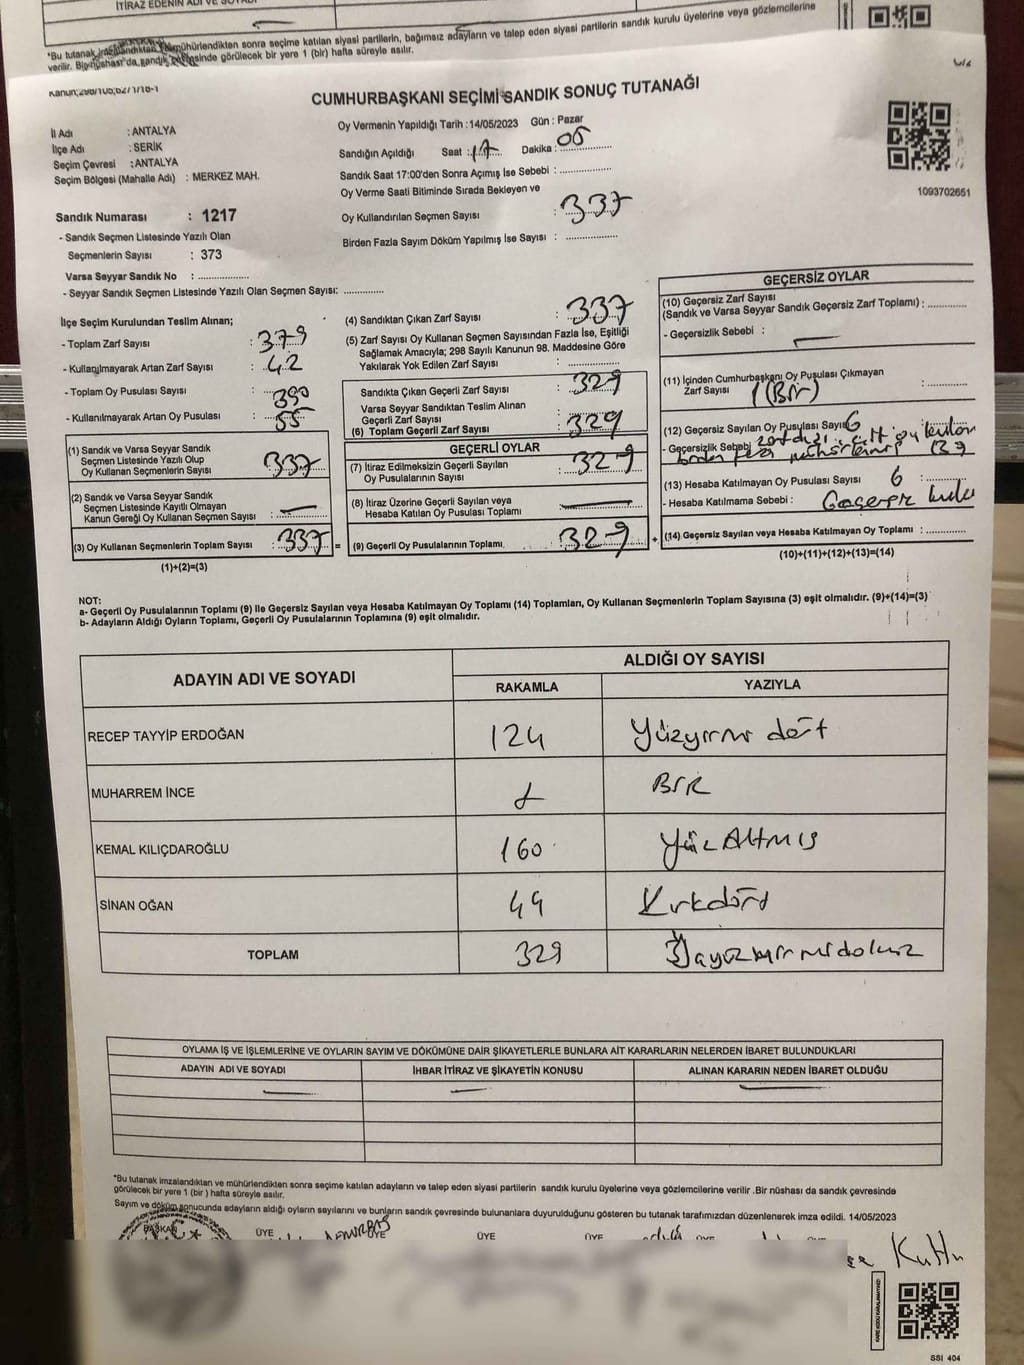 İTİRAZ EDENİN ADI VE SOYADI
*Bu tutanak imzalandıktan mühürlendikten sonra seçime katılan siyasi partilerin, bağımsız adayların ve talep eden siyasi partilerin sandık kurulu üyelerine veya gözlemcilerine
verilir. Bir nüshası da sandık çevresinde görülecek bir yere 1 (bir) hafta süreyle asılır.
CUMHURBAŞKANI SEÇİMİ SANDIK SONUÇ TUTANAĞI
İl Adı : ANTALYA
İlçe Adı : SERİK
Seçim Çevresi : ANTALYA
Seçim Bölgesi (Mahalle Adı) : MERKEZ MAH.
Oy Vermenin Yapıldığı Tarih : 14/05/2023 Gün : Pazar
Sandığın Açıldığı Saat : 17 Dakika : 05
Sandık Saat 17:00'den Sonra Açımış İse Sebebi :
Oy Verme Saati Bitiminde Sırada Bekleyen ve
Oy Kullandırılan Seçmen Sayısı : 337
Birden Fazla Sayım Döküm Yapılmış İse Sayısı :
1093702651
Sandık Numarası : 1217
- Sandık Seçmen Listesinde Yazılı Olan
Seçmenlerin Sayısı : 373
Varsa Seyyar Sandık No :
- Seyyar Sandık Seçmen Listesinde Yazılı Olan Seçmen Sayısı:
İlçe Seçim Kurulundan Teslim Alınan;
- Toplam Zarf Sayısı : 379
- Kullanılmayarak Artan Zarf Sayısı : 42
- Toplam Oy Pusulası Sayısı : 390
- Kullanılmayarak Artan Oy Pusulası : 55
(1) Sandık ve Varsa Seyyar Sandık
Seçmen Listesinde Yazılı Olup
Oy Kullanan Seçmenlerin Sayısı : 337
(2) Sandık ve Varsa Seyyar Sandık
Seçmen Listesinde Kayıtlı Olmayan
Kanun Gereği Oy Kullanan Seçmen Sayısı :
(3) Oy Kullanan Seçmenlerin Toplam Sayısı : 337
(1)+(2)=(3)
(4) Sandıktan Çıkan Zarf Sayısı : 337
(5) Zarf Sayısı Oy Kullanan Seçmen Sayısından Fazla İse, Eşitliği
Sağlamak Amacıyla; 298 Sayılı Kanunun 98. Maddesine Göre
Yakılarak Yok Edilen Zarf Sayısı :
Sandıkta Çıkan Geçerli Zarf Sayısı : 329
Varsa Seyyar Sandıktan Teslim Alınan
Geçerli Zarf Sayısı :
(6) Toplam Geçerli Zarf Sayısı : 329
GEÇERLİ OYLAR
(7) İtiraz Edilmeksizin Geçerli Sayılan
Oy Pusulasının Sayısı : 329
(8) İtiraz Üzerine Geçerli Sayılan veya
Hesaba Katılan Oy Pusulası Toplamı :
(9) Geçerli Oy Pusulalarının Toplamı : 329
GEÇERSİZ OYLAR
(10) Geçersiz Zarf Sayısı
(Sandık ve Varsa Seyyar Sandık Geçersiz Zarf Toplamı) :
- Geçersizlik Sebebi :
(11) İçinden Cumhurbaşkanı Oy Pusulası Çıkmayan
Zarf Sayısı : 1 (Bir)
(12) Geçersiz Sayılan Oy Pusulası Sayısı 6
- Geçersizlik Sebebi çift oy
(13) Hesaba Katılmayan Oy Pusulası Sayısı 6 :
- Hesaba Katılmama Sebebi : Geçersiz
(14) Geçersiz Sayılan veya Hesaba Katılmayan Oy Toplamı :
(10)+(11)+(12)+(13)=(14)
NOT:
a- Geçerli Oy Pusulalarının Toplamı (9) ile Geçersiz Sayılan veya Hesaba Katılmayan Oy Toplamı (14) Toplamları, Oy Kullanan Seçmenlerin Toplam Sayısına (3) eşit olmalıdır. (9)+(14)=(3)
b- Adayların Aldığı Oyların Toplamı, Geçerli Oy Pusulalarının Toplamına (9) eşit olmalıdır.
ADAYIN ADI VE SOYADI ALDIĞI OY SAYISI
RAKAMLA YAZIYLA
RECEP TAYYİP ERDOĞAN 124 Yüzyirmi dört
MUHARREM İNCE 1 BİR
KEMAL KILIÇDAROĞLU 160 Yüz Altmış
SİNAN OĞAN 44 Kırkdört
TOPLAM 329 Üçyüzyirmidokuz
OYLAMA İŞ VE İŞLEMLERİNE VE OYLARIN SAYIM VE DÖKÜMÜNE DAİR ŞİKAYETLERLE BUNLARA AİT KARARLARIN NELERDEN İBARET BULUNDUKLARI
ADAYIN ADI VE SOYADI İHBAR İTİRAZ VE ŞİKAYETİN KONUSU ALINAN KARARIN NEDEN İBARET OLDUĞU
*Bu tutanak imzalandıktan ve mühürlendikten sonra seçime katılan adayların ve talep eden siyasi partilerin sandık kurulu üyelerine veya gözlemcilerine verilir .Bir nüshası da sandık çevresinde
görülecek bir yere 1 (bir ) hafta süreyle asılır.
Sayım ve döküm sonucunda adayların aldığı oyların sayılarını ve bunların sandık çevresinde bulunanlara duyurulduğunu gösteren bu tutanak tarafımızdan düzenlenerek imza edildi. 14/05/2023
BAŞKAN ÜYE ÜYE ÜYE ÜYE ÜYE ÜYE
SSI 404